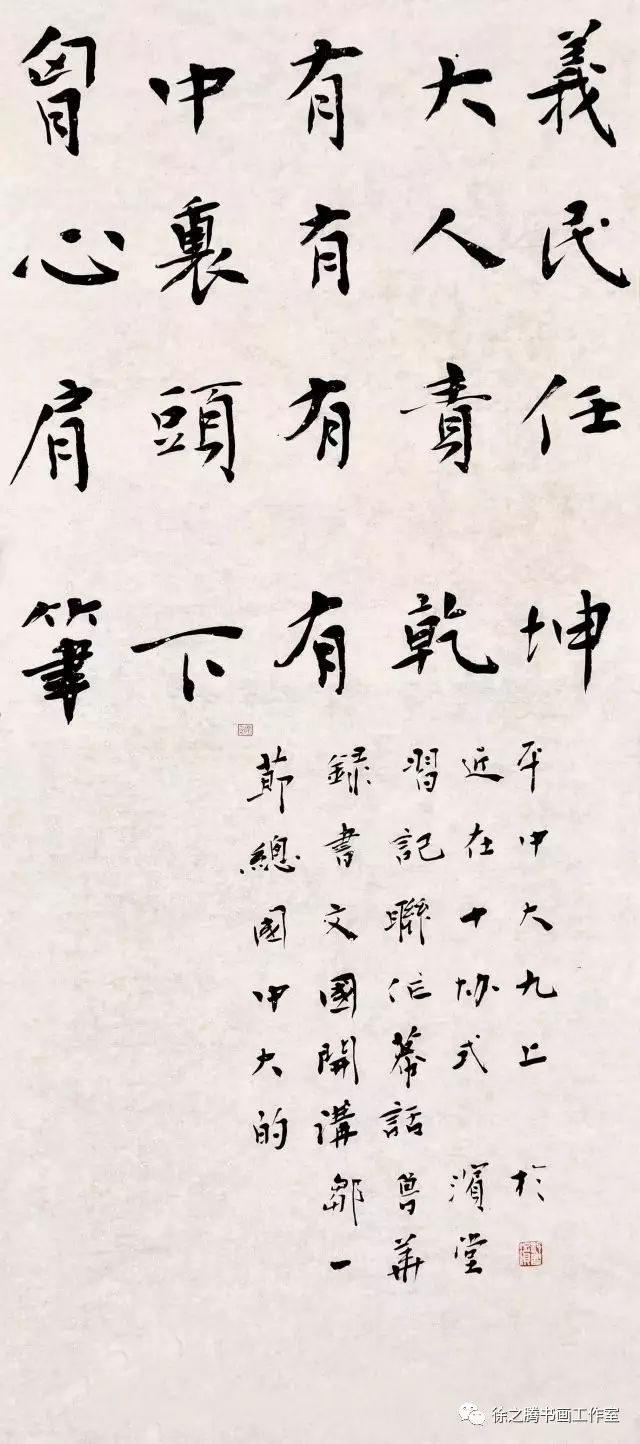 胷中有大義
心裏有人民
肩頭有責任
筆下有乾坤
節録習近平
總書記在中
國文聯十大
中國作協九
大開幕式上
的講話
鄒魯濱於
一華堂
徐之腾书画工作室